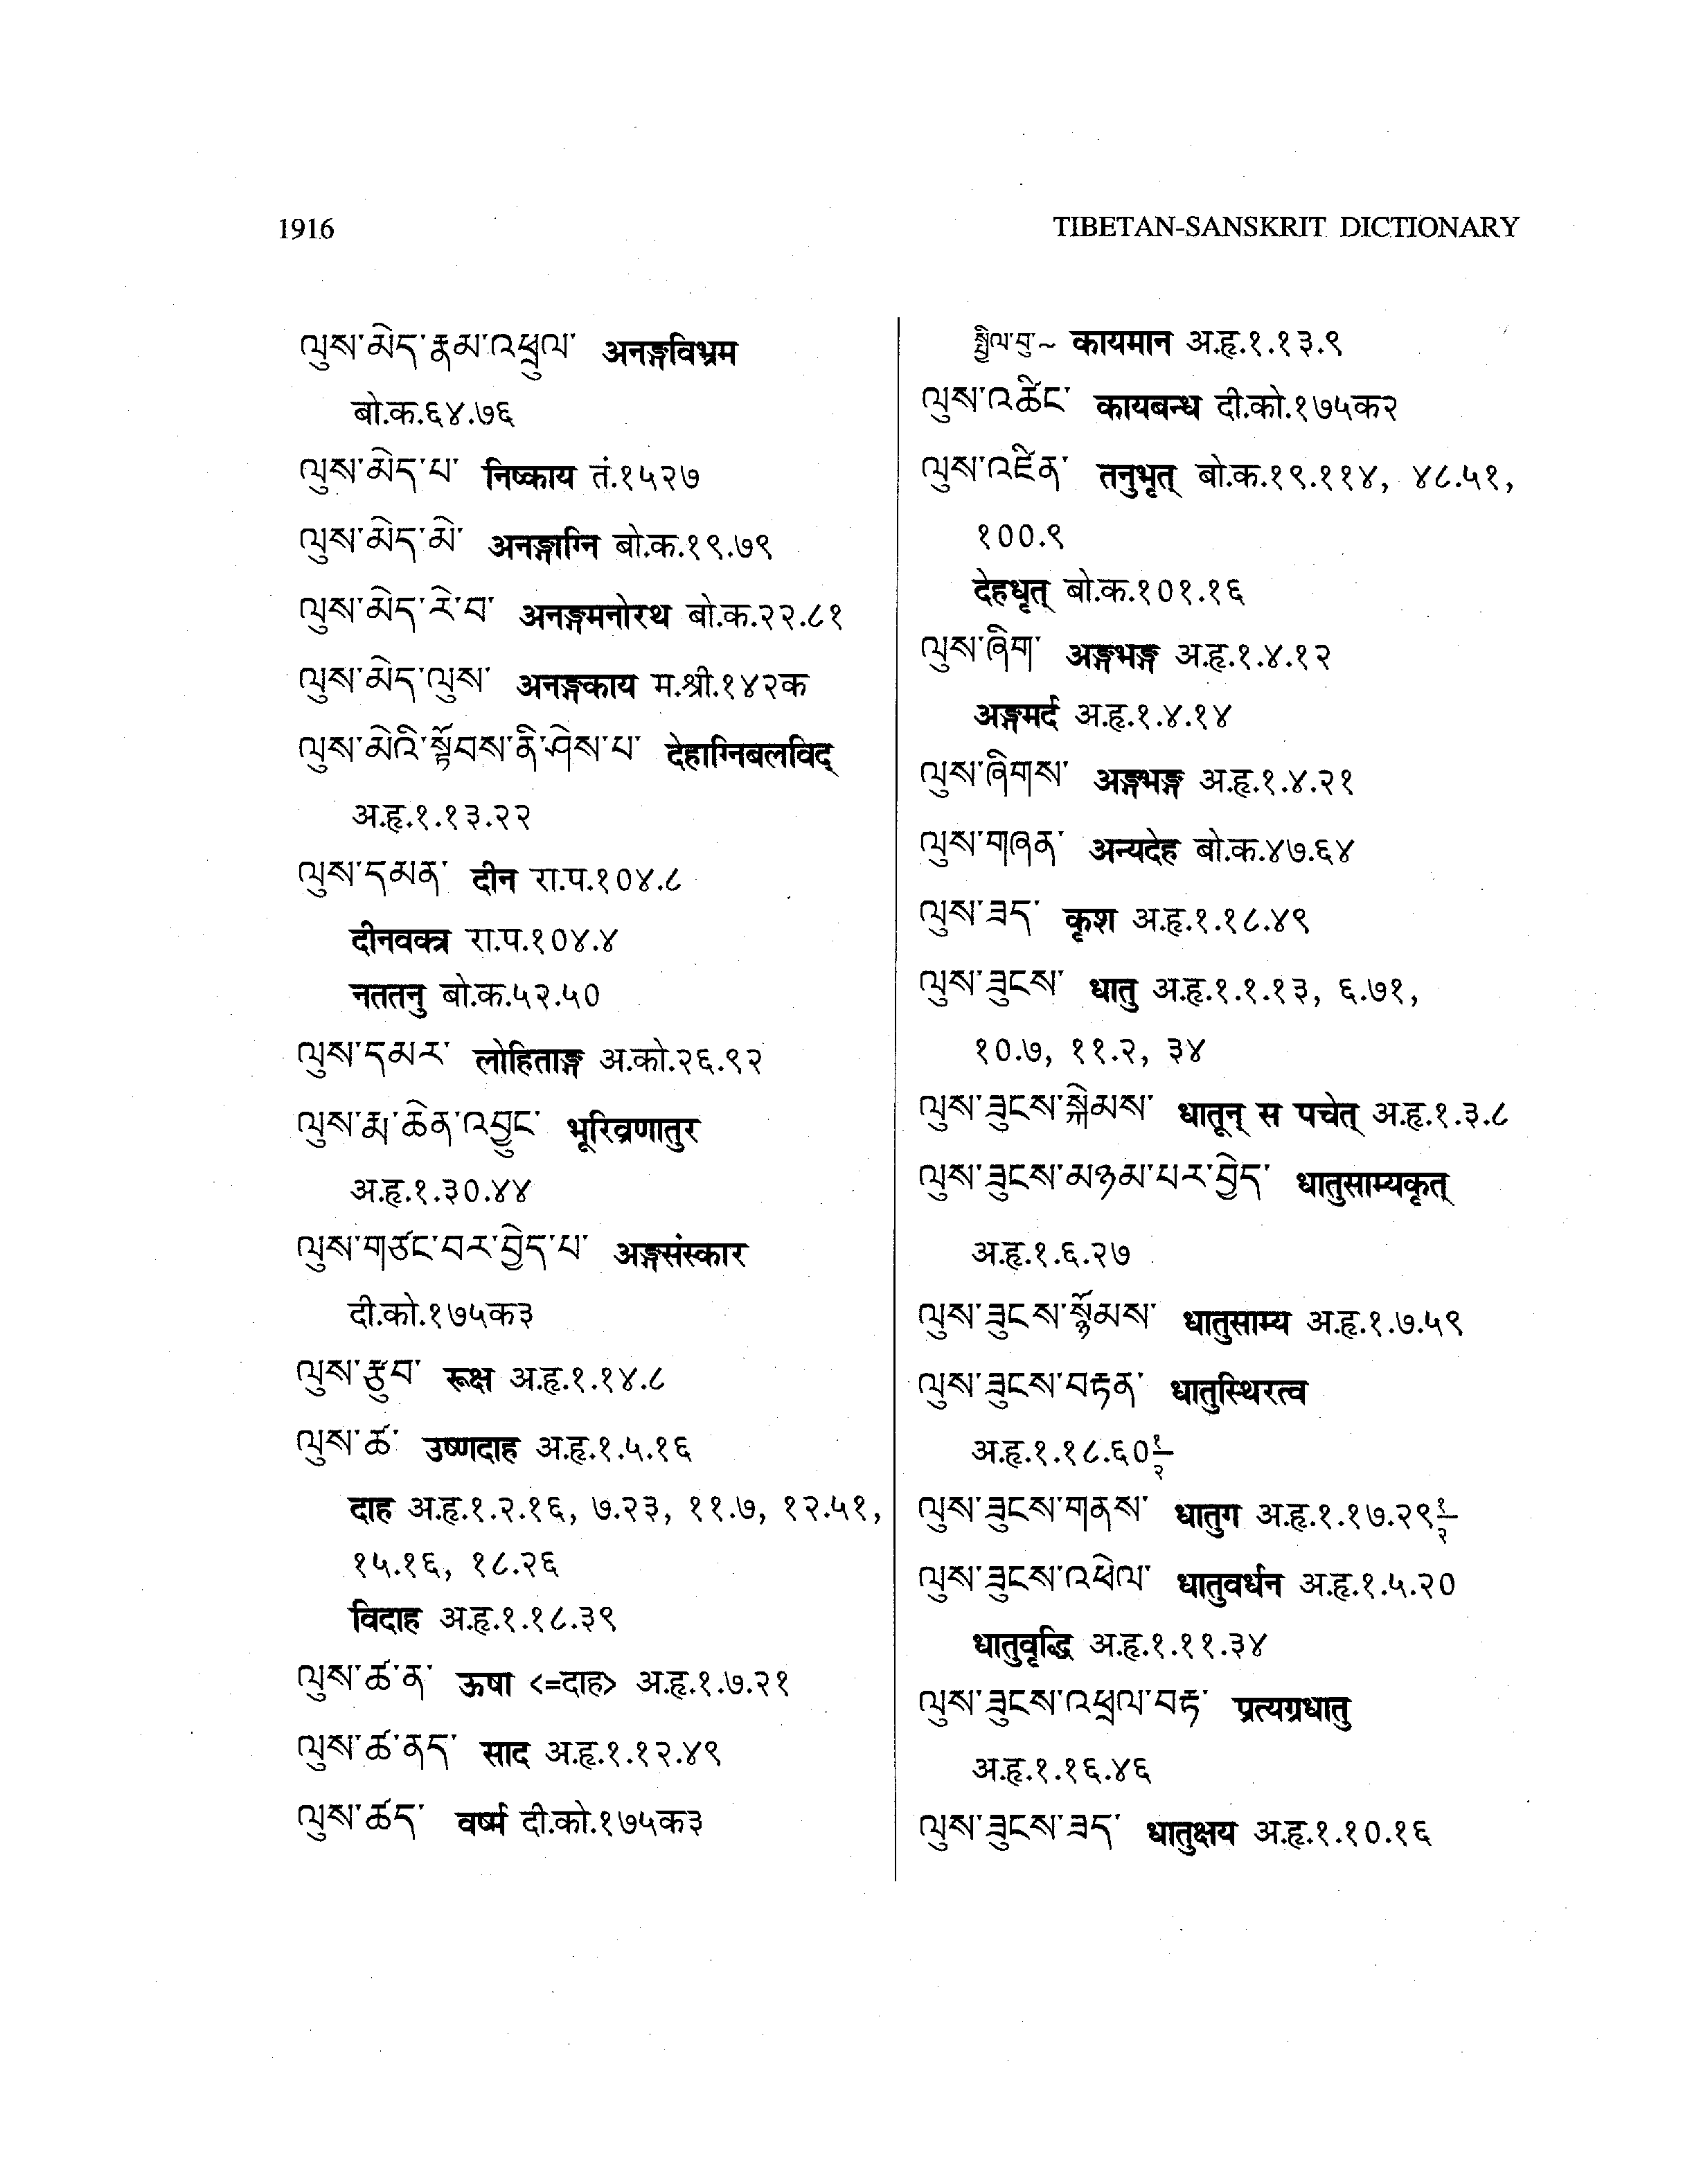 1916
TIBETAN-SANSKRIT DICTIONARY
ལུས་མེད་རྣམ་འཕྲུལ་ अनङ्गविभ्रम
बो.क.६४.७६
ལུས་མེད་པ་ निष्काय तं.१५२७
ལུས་མེད་མེ་ अनङ्गाग्नि बो.क.१९.७९
ལུས་མེད་རེ་བ་ अनङ्गमनोरथ बो.क.२२.८१
ལུས་མེད་ལུས་ अनङ्गकाय म.श्री.१४२क
ལུས་མེའི་སྟོབས་ནི་ཤེས་པ་ देहाग्निबलविद्
अ.हृ.१.१३.२२
ལུས་དམན་ दीन रा.प.१०४.८
दीनवक्त्र रा.प.१०४.४
नततनु बो.क.५२.५०
ལུས་དམར་ लोहिताङ्ग अ.को.२६.९२
ལུས་རྨ་ཆེན་འབྱུང་ भूरिव्रणातुर
अ.हृ.१.३०.४४
ལུས་གཙང་བར་བྱེད་པ་ अङ्गसंस्कार
दी.को.१७५क३
ལུས་རྩུབ་ रूक्ष अ.हृ.१.१४.८
ལུས་ཚ་ उष्णदाह अ.हृ.१.५.१६
दाह अ.हृ.१.२.१६, ७.२३, ११.७, १२.५१,
१५.१६, १८.२६
विदाह अ.हृ.१.१८.३९
ལུས་ཚ་ན་ ऊषा <=दाह> अ.हृ.१.७.२१
ལུས་ཚ་ནད་ साद अ.हृ.१.१२.४९
ལུས་ཚད་ वर्ष्म दी.को.१७५क३
སྤྱིལ་བུ་~ कायमान अ.हृ.१.१३.९
ལུས་འཆིང་ कायबन्ध दी.को.१७५क२
ལུས་འཛིན་ तनुभृत् बो.क.१९.११४, ४८.५१,
१००.९
देहधृत् बो.क.१०१.१६
ལུས་ཞིག་ अङ्गभङ्ग अ.हृ.१.४.१२
अङ्गमर्द अ.हृ.१.४.१४
ལུས་ཞིགས་ अङ्गभङ्ग अ.हृ.१.४.२१
ལུས་གཞན་ अन्यदेह बो.क.४७.६४
ལུས་ཟད་ कृश अ.हृ.१.१८.४९
ལུས་ཟུངས་ धातु अ.हृ.१.१.१३, ६.७१,
१०.७, ११.२, ३४
ལུས་ཟུངས་སྐེམས་ धातून् स पचेत् अ.हृ.१.३.८
ལུས་ཟུངས་མཉམ་པར་བྱེད་ धातुसाम्यकृत्
अ.हृ.१.६.२७
ལུས་ཟུངས་སྙོམས་ धातुसाम्य अ.हृ.१.७.५९
ལུས་ཟུངས་བརྟན་ धातुस्थिरत्व
अ.हृ.१.१८.६०१/२
ལུས་ཟུངས་གནས་ धातुग अ.हृ.१.१७.२९१/२
ལུས་ཟུངས་འཕེལ་ धातुवर्धन अ.हृ.१.५.२०
धातुवृद्धि अ.हृ.१.११.३४
ལུས་ཟུངས་འཕྲལ་བརྟ་ प्रत्यग्रधातु
अ.हृ.१.१६.४६
ལུས་ཟུངས་ཟད་ धातुक्षय अ.हृ.१.१०.१६